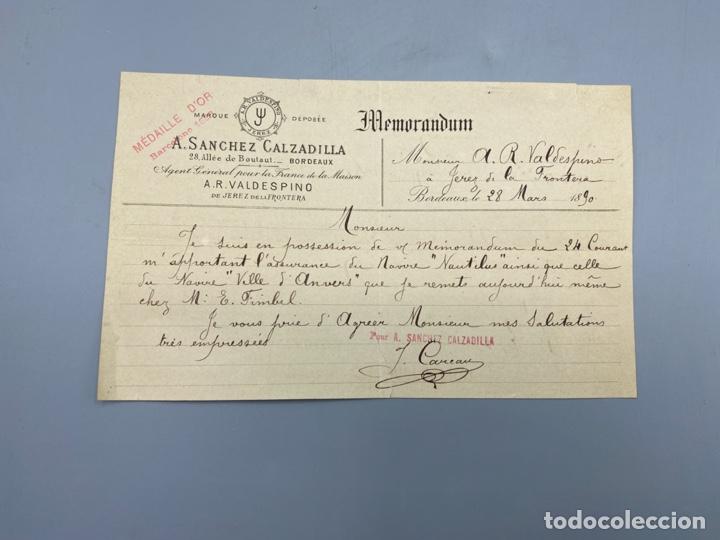 MÉDAILLE D'OR
MARQUE DÉPOSÉE
A.R. VALDESPINO
JEREZ
A. SANCHEZ CALZADILLA
28, Allée de Boutaut._ BORDEAUX
Agent Général pour la France de la Maison
A.R. VALDESPINO
DE JEREZ DE LA FRONTERA
Memorandum
Monsieur A. R. Valdespino
à Jerez de la Frontera
Bordeaux, le 28 Mars 1890
Monsieur
Je suis en possession de v/ Memorandum du 24 Courant
m'apportant l'assurance du Navire "Nautilus" ainsi que celle
du Navire "Ville d'Anvers" que je remets aujourd'hui même
chez Mr E. Fimbel.
Je vous prie d'Agréer Monsieur mes Salutations
très empressées
Pour A. SANCHEZ CALZADILLA
todocoleccion.net